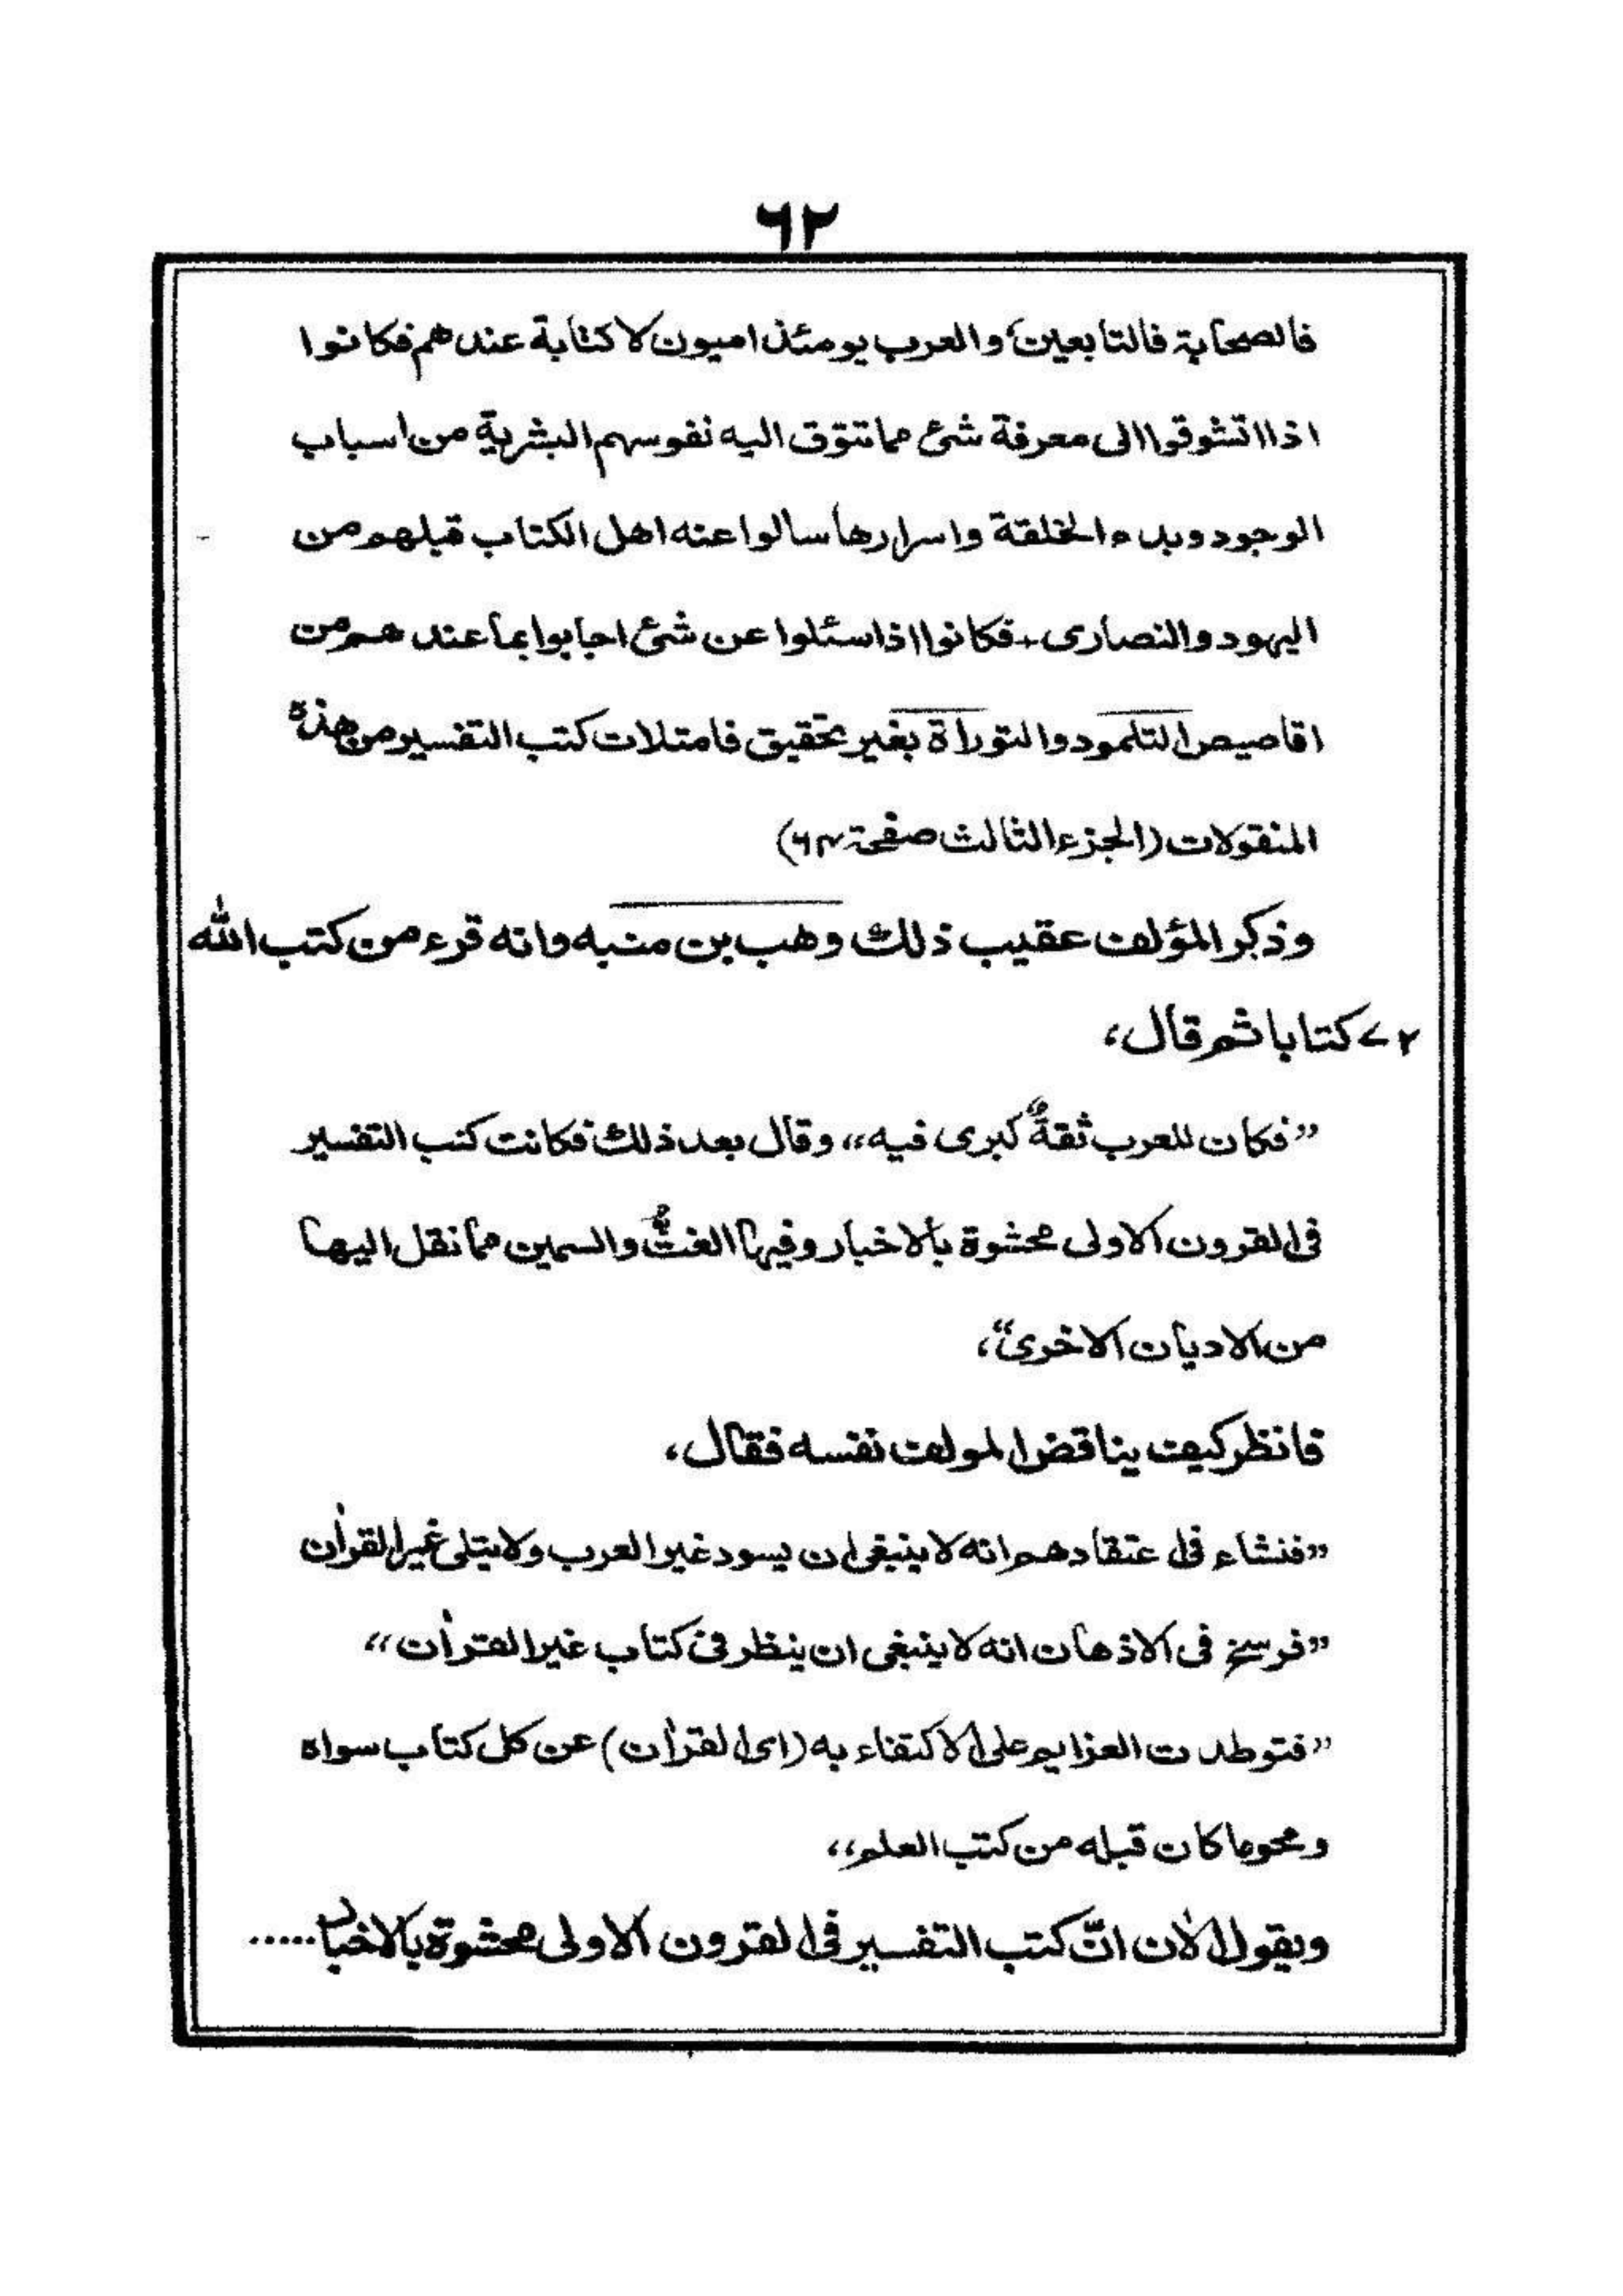 ٦٢
فالصحابة فالتابعين، والعرب يومئذ اميون لا كتابة عندهم فكانوا
اذا تشوقوا الى معرفة شئ مما تتوق اليه نفوسهم البشرية من اسباب
الوجود وبدء الخلقة واسرارها سالوا عنه اهل الكتاب قبلهم من
اليهود والنصارى - فكانوا اذا سئلوا عن شئ اجابوا بما عندهم من
اقاصيص التلمود والتوراة بغير تحقيق فامتلات كتب التفسير من هذه
المنقولات (الجزء الثالث صفحة ٦٤)
وذكر المؤلف عقيب ذلك وهب بن منبه وانه قرء من كتب الله
٧٢ كتابا ثم قال،
”فكان للعرب ثقةٌ كبرى فيه“ وقال بعد ذلك فكانت كتب التفسير
فى القرون الاولى محشوة بالاخبار وفيها الغثُّ والسمين مما نقل اليها
من الاديان الاخرى“،
فانظر كيف يناقض المولف نفسه فقال،
”فنشاء فى اعتقادهم انه لا ينبغى ان يسود غير العرب ولا يتلى غير القراٰن
”فرسخ فى الاذهان انه لا ينبغى ان ينظر فى كتاب غير القراٰن“
”فتوطدت العزايم على الاكتفاء به (اى القراٰن) عن كل كتاب سواه
ومحو ما كان قبله من كتب العلم“
ويقول الاٰن انّ كتب التفسير فى القرون الاولى محشوة بالاخبار.....